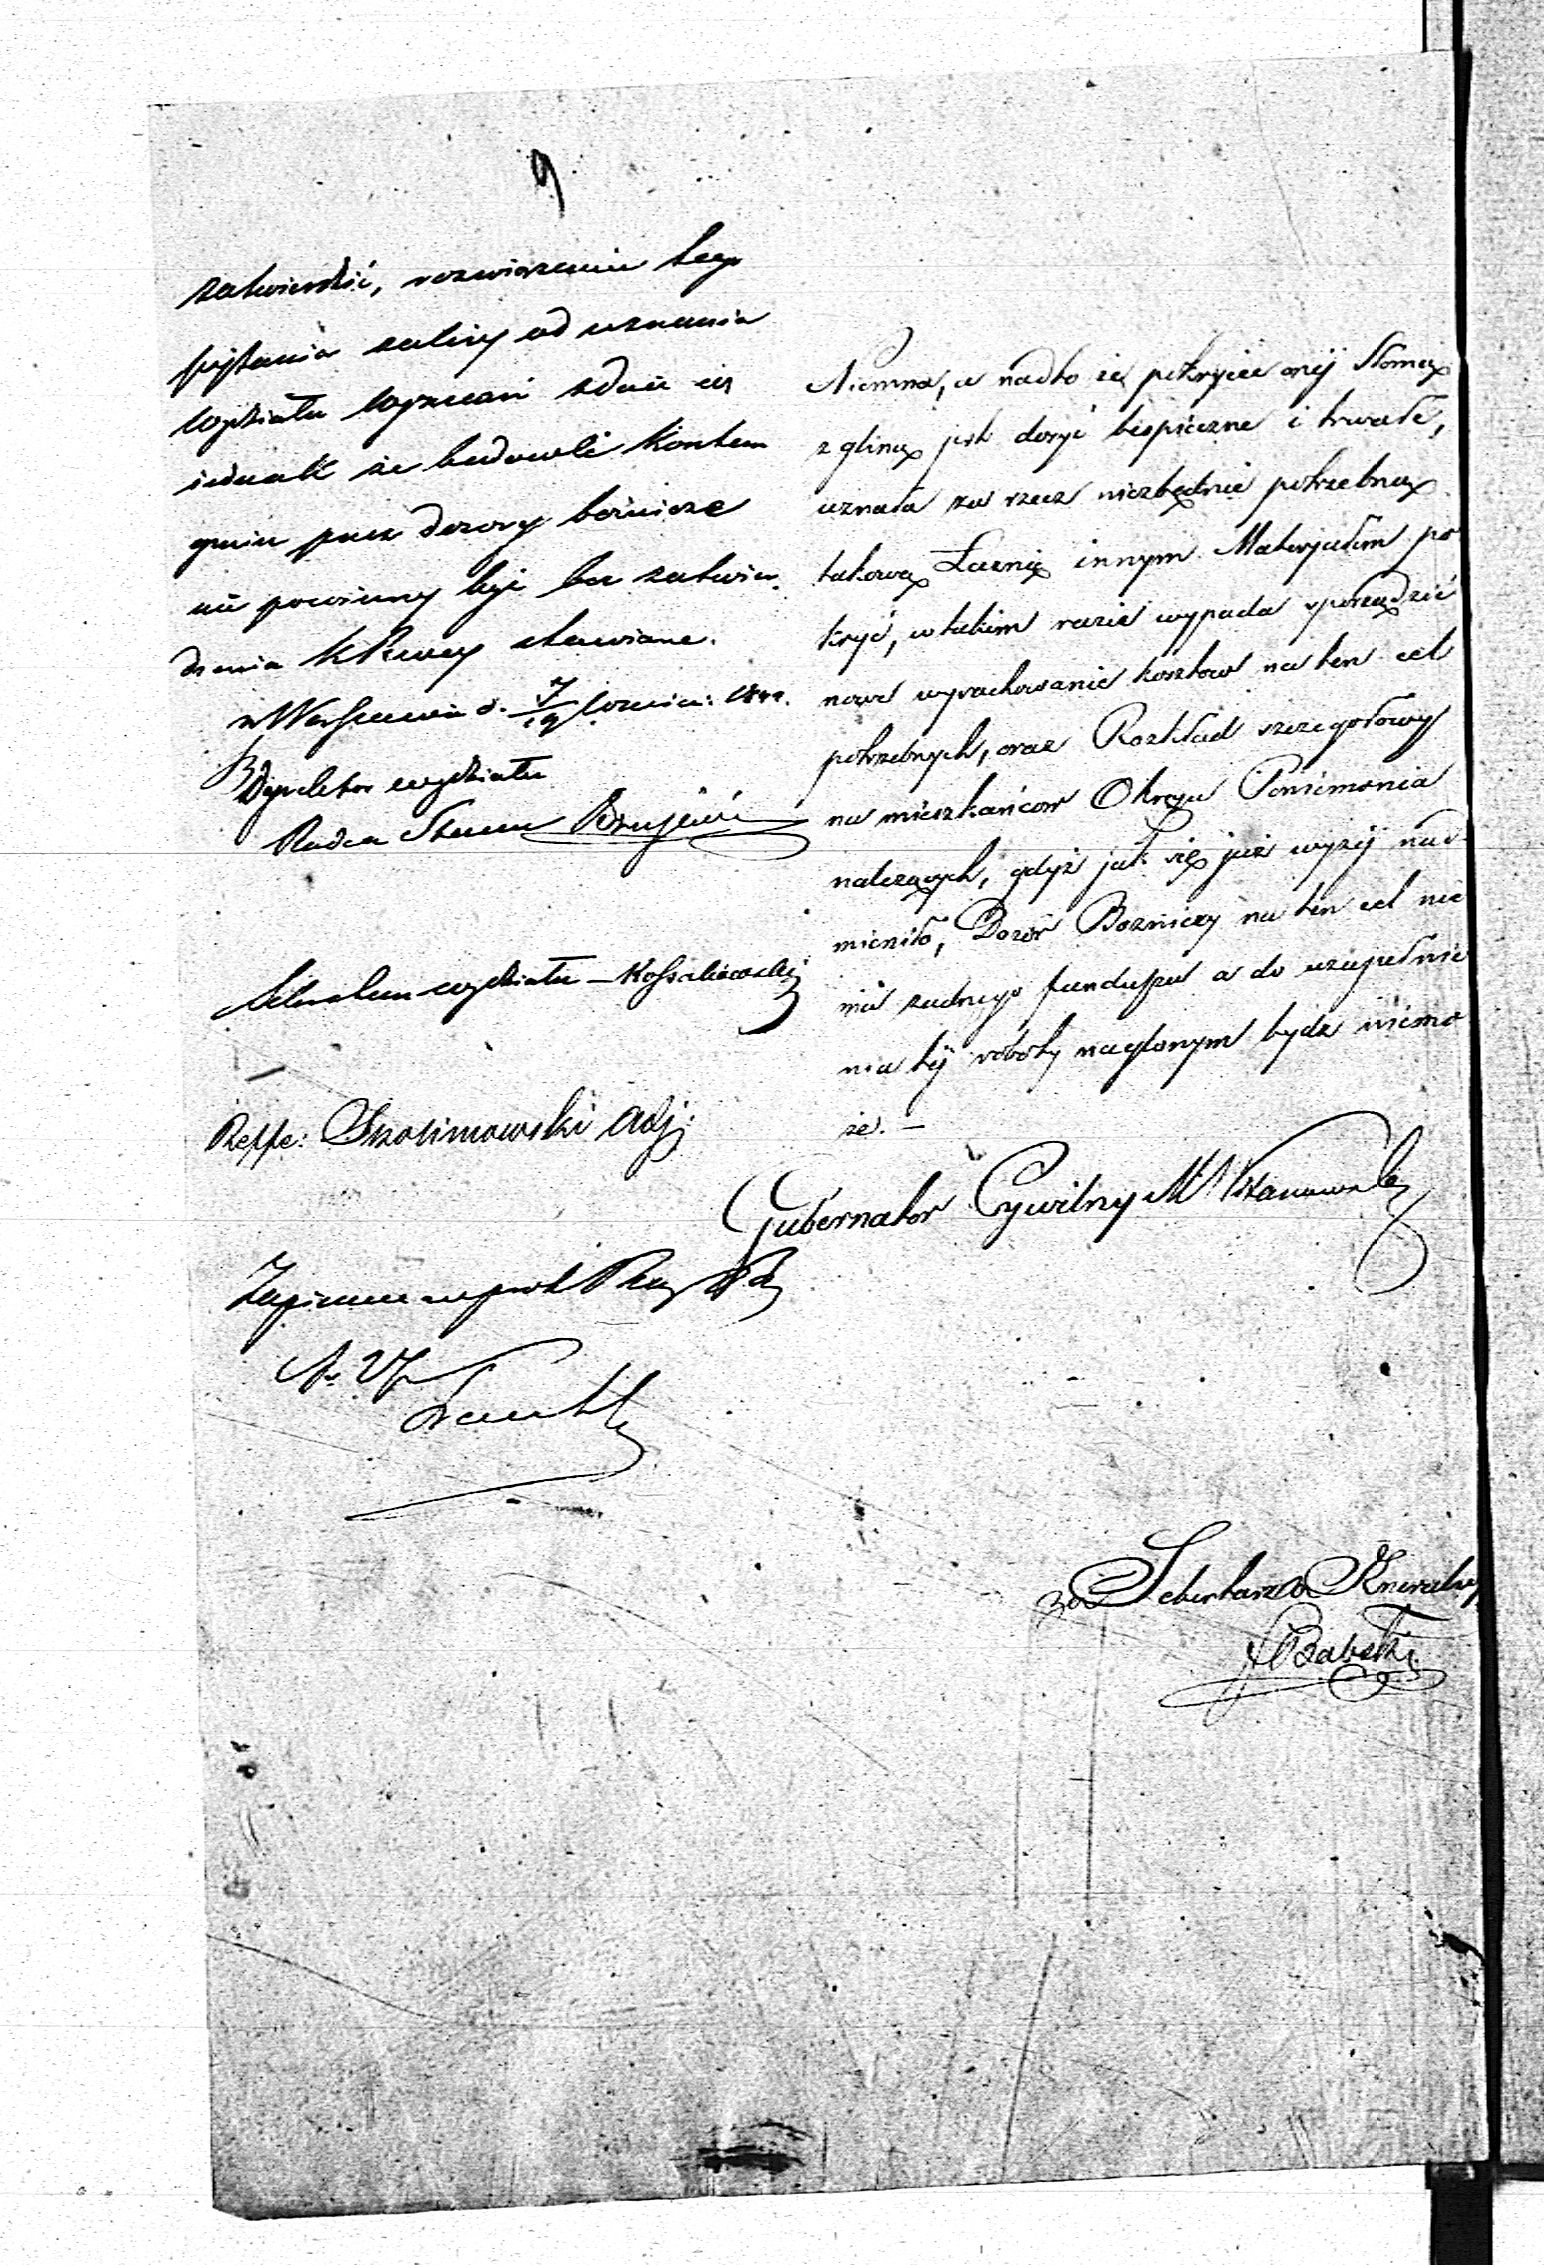 9
zatwierdzić, rozwiązanie tego
pytania zależy od uznania
Wydziału Wyznań zdaie się
iednak że budowle kosztem
gmin przez dozory bóżnicze
nie powinny być bez zatwier-
dzenia K Rzowey stawiane.
w Warszawie d. 7/19 Czerwca 184
Dyrektor wydziału
Radca Stanu
Sekretarz wydziału – Kossakowski
Reffe: Skolimowski Adj:
Zapisano
N. 27
Niemna, a nadto że pokrycie onéj słomą
z gliną jest dosyć bespieczne i trwałe,
uznała za rzecz niezbędnie potrzebną
takową Łaznię innym Materyałem po
kryć, w takim razie wypada sporządzić
nowe wyrachowanie kosztow na ten cel
potrzebnych, oraz Rozkład szczegołowy
na mieszkańcow Okręgu Poniemonia
należących, gdyż jak się już wyżéj nad-
mieniło, Dozór Bozniczy na ten cel nie
ma żadnego funduszu a do uzupełnie
nia téj roboty naglonym bydz niemo
że. –
Gubernator Cywilny
za Sekretarza Jeneralnego